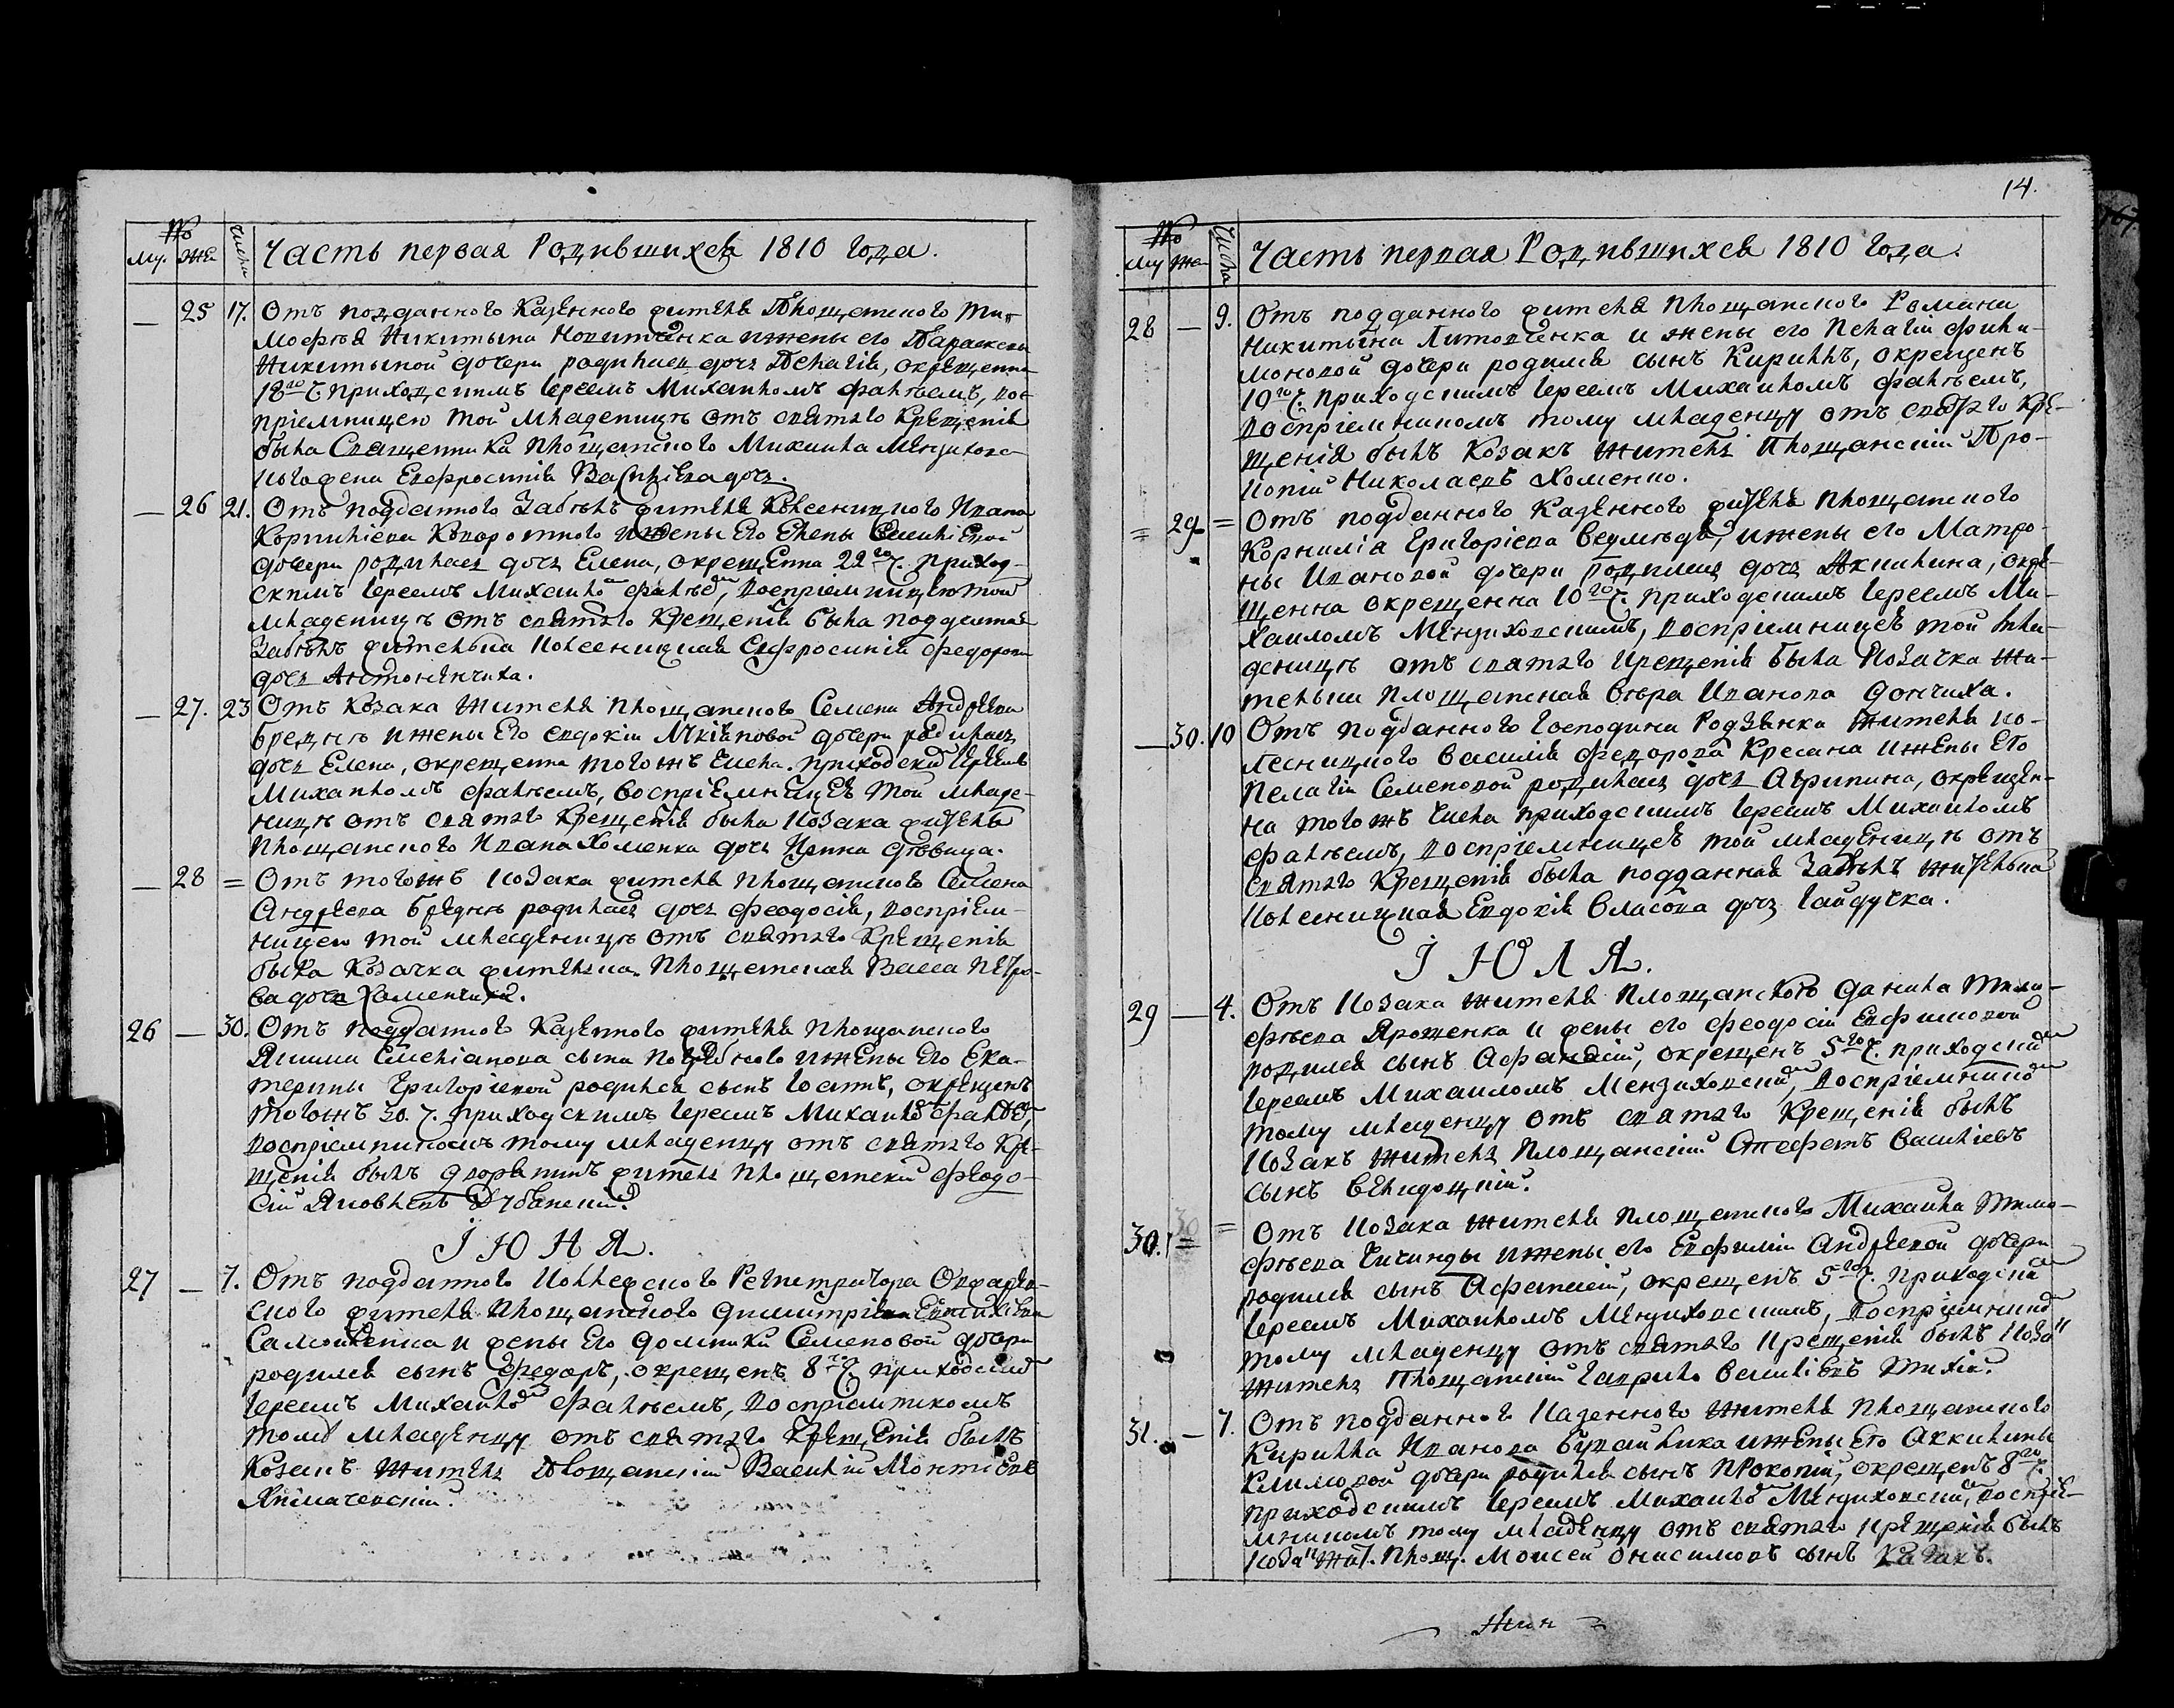 №
Му. Же Числа Часть первая Родившихся 1810 года.
— 25 17. Отъ подданного Казенного жителя Площанского Ти-
мофея Никитына Новитченка и жены его Параскевы
Никитыной дочери родилась дочъ Пелагія, окрещенна
18го ч. приходскимъ Іереемъ Михаиломъ Фалѣемъ, вос-
пріемницею той младеницѣ отъ святаго Крещенія
была Священника Площанского Михаила Мензиховс-
кого жена Евфросинія Василіева дочъ.
— 26 21. Отъ подданного Забѣлъ жителя Колесницкого Ивана
Корниліева Коваротного и жены его Елены Емиліевой
дочери родилась дочъ Елена, окрещенна 22го ч. приход-
скимъ Іереемъ Михаило Фалѣе, воспріемницею той
младеницѣ отъ святаго Крещенія была подданная
Забѣлъ жителька Колесницкая Евфросинія Федорова
дочъ Антоненчиха.
— 27. 23 Отъ Козака жителя Площанского Семена Андреева
Бреднѣ и жены его Евдокіи Лукіяновой дочери родилась
дочъ Елена, окрещенна того жъ числа приходски Іереемъ
Михаиломъ Фалѣемъ, воспріемницею той младе-
ницѣ отъ святаго Крещенія была Козака жителя
Площанского Ивана Хоменка дочъ Ирина дѣвица.
— 28 = Отъ того жъ Козака жителя Площанского Семена
Андреева Бреднѣ родилась дочъ Феодосія, воспріем-
ницею той младеницѣ отъ святаго Крещенія
была Козачка жителька Площанская Васса Петро-
ва дочъ Хоменчиха.
26 — 30. Отъ подданного Казенного жителя Площанского
Якима Емеліанова сына Потребного и жены его Ека-
терины Григоріевой родился сынъ Іоаннъ, окрещенъ
того жъ 30. ч. приходскимъ Іереемъ Михаило Фалѣе,
воспріемникомъ тому младенцу отъ святаго Кре-
щенія былъ дворянинъ житель Площанскій Феодо-
сій Яковлевъ Дубанскій.
ІЮНЯ.
27 — 7. Отъ подданного Коллежского Регистратора Остафѣв-
ского жителя Площанского Димитрія
Самойленка и жены его Домникіи Семеновой дочери
родился сынъ Федоръ, окрещенъ 8го ч. приходским
Іереемъ Михаило Фалѣемъ, воспріемникомъ
тому младенцу отъ святаго Крещенія былъ
Козакъ житель Площанскій Василій Мойсѣевъ
Якимачевскій.
14.
№
Му Же Числа Часть первая Родившихся 1810 года.
28 — 9. Отъ подданного жителя Площанского Романа
Никитына Литовченка и жены его Пелагіи Фили-
моновой дочери родился сынъ Кириллъ, окрещенъ
10го ч. приходскимъ Іереемъ Михаиломъ Фалѣемъ,
воспріемникомъ тому младенцу отъ святаго Кре-
щенія былъ Козакъ житель Площанскій Про-
копій Николаевъ Хоменко.
= 29. = Отъ подданного Казенного жителя Площанского
Корнилія Григоріева Веумѣдя, и жены его Матро-
ны Ивановой дочери родилась дочъ Акилина, окре-
щенна окрещенна 10го ч. приходскимъ Іереемъ Ми-
хаиломъ Мензиховскимъ, воспріемницею той мла-
деницѣ отъ святаго Крещенія была Козачка жи-
телька Площанская Вѣра Иванова Дончиха.
— 30. 10 Отъ подданного Господина Родзянка жителя Ко-
лесницкого Василія Федорова Кресана и жены его
Пелагіи Семеновой родилась дочъ Агрипина, окрещен-
на того жъ числа приходскимъ Іереемъ Михаиломъ
Фалѣемъ, воспріемницею той младеницѣ отъ
святаго Крещенія была подданная Забѣлъ жителька
Колесницкая Евдокія Власова дочъ Гайдучка.
ІЮЛЯ.
29 — 4. Отъ Козака жителя Площанского Данила Тимо-
фѣева Ярошенка и жены его Феодосіи Евфимовой
родился сынъ Афанасій, окрещенъ 5го ч. приходски
Іереемъ Михаиломъ Мензиховски, воспріемнико
тому младенцу отъ святаго Крещенія былъ
Козакъ житель Площанскій Стефанъ Василіевъ
сынъ Великодщій.
30. = = Отъ Козака жителя Площанского Михаила Тимо-
фѣева Чичинды и жены его Евфиміи Андреевой дочери
родился сынъ Афанасій, окрещенъ 5го ч. приходски
Іереемъ Михаиломъ Мензиховскимъ, воспріемнико
тому младенцу отъ святаго Крещенія былъ Козак
житель Площанскій Гаврило Василіевъ Тихій.
31. — 7. Отъ подданного Казенного жителя Площанского
Кирилла Иванова Бувайлика и жены его Акилины
Климовой дочери родился сынъ Прокопій, окрещенъ 8го ч.
приходскимъ Іереемъ Михаило Мензиховски, воспріе-
мникомъ тому младенцу отъ святаго Крещенія былъ
Козак жит. Площ. Моисей Онисимовъ сынъ Качакъ.